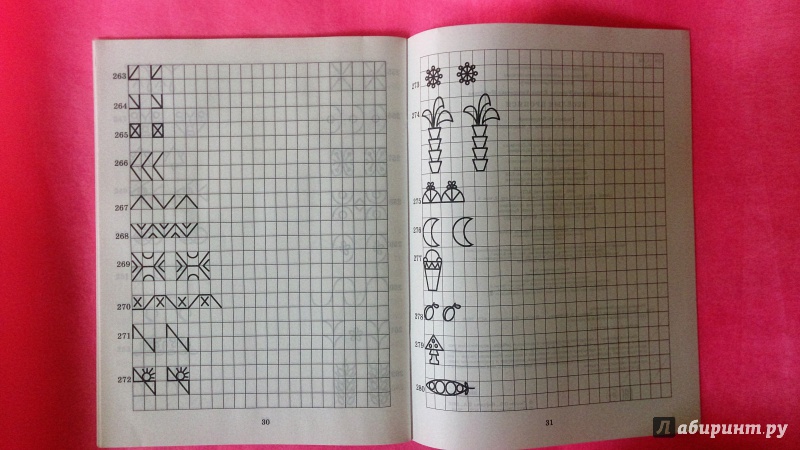 263
264
265
266
267
268
269
270
271
272
30
273
274
275
276
277
278
279
280
31
Лабиринт.ру